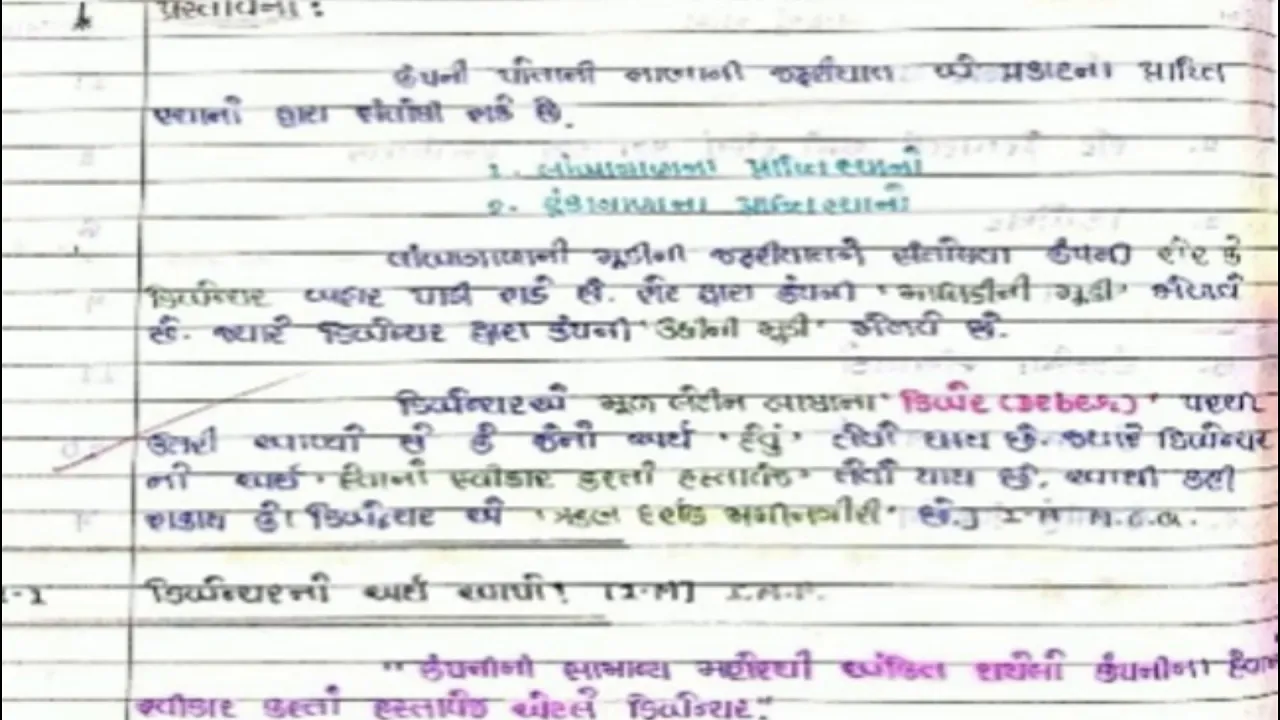 પ્રસ્તાવના :
કંપની પોતાની નાણાની જરૂરીયાત બે પ્રકારના પ્રાપ્તિ
સ્થાનો દ્વારા સંતોષી શકે છે.
1. લાંબાગાળાના પ્રાપ્તિસ્થાનો
2. ટૂંકાગાળાના પ્રાપ્તિસ્થાનો
લાંબાગાળાની મૂડીની જરૂરીયાતને સંતોષવા કંપની શેર કે
ડિબેન્ચર બહાર પાડી શકે છે. શેર દ્વારા કંપની 'માલિકીની મૂડી' મેળવે
છે. જ્યારે ડિબેન્ચર દ્વારા કંપની 'ઉછીની મૂડી' મેળવે છે.
ડિબેન્ચર એ મૂળ લેટીન ભાષાના 'ડિબેર પરથી
ઉતરી આવ્યો છે કે જેનો અર્થ 'દેવું' તેવો થાય છે. જ્યારે ડિબેન્ચર
નો અર્થ 'દેવાનો સ્વીકાર કરતો દસ્તાવેજ' તેવો થાય છે. આથી કહી
શકાય કે ડિબેન્ચર એ છે. M.C.Q.
ડિબેન્ચરનો અર્થ આપો! [2-M] I.M.P.
"કંપનીની સામાન્ય મહોરથી અંકિત થયેલો કંપનીના દેવા
સ્વીકાર કરતો દસ્તાવેજ એટલે ડિબેન્ચર."